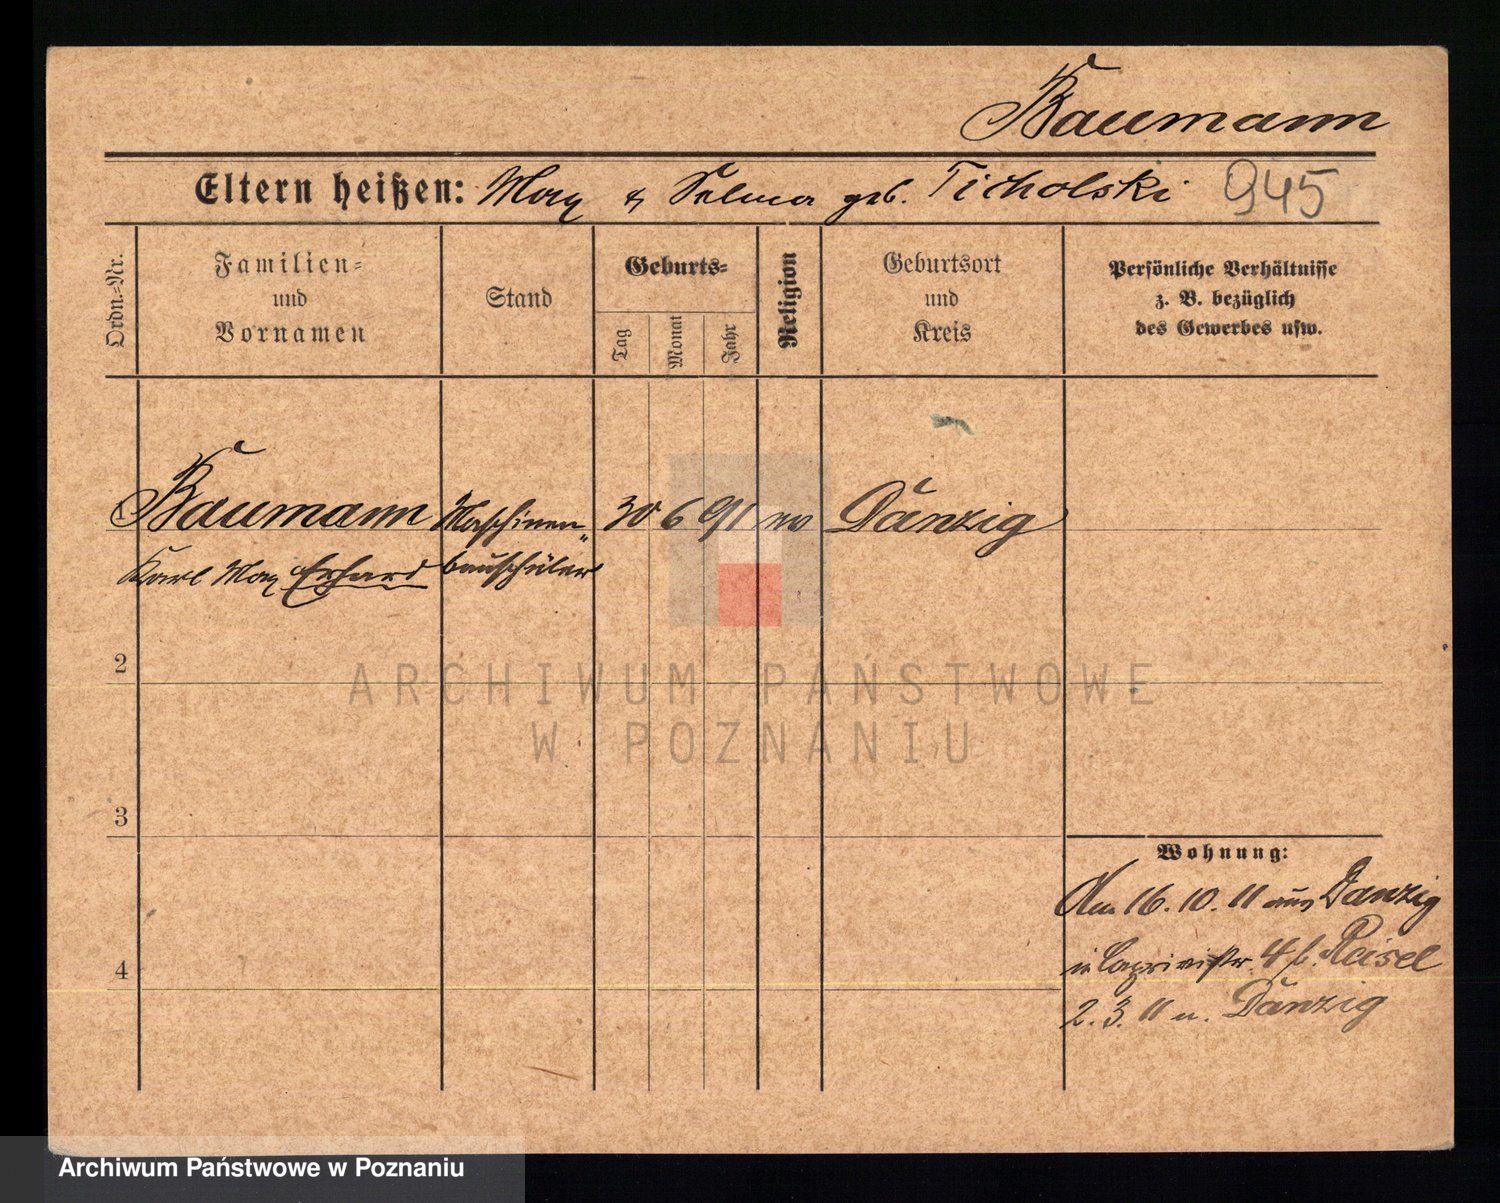 Baumann
Eltern heißen: Max & Selma geb. Ticholski 945
Ordn.-Nr.
Familien-
und
Vornamen
Stand
Geburts-
Tag
Monat
Jahr
Religion
Geburtsort
und
Kreis
Persönliche Verhältnisse
z. B. bezüglich
des Gewerbes usw.
Baumann Maschinen- 30 6 91 Danzig
Karl Max Erhard bauschüler
2
ARCHIWUM PAŃSTWOWE
W POZNANIU
3
Wohnung:
Am 16. 10. 11 aus Danzig
4
in Caprivistr. 4 b. Reisel
2. 3. 11 n. Danzig
Archiwum Państwowe w Poznaniu